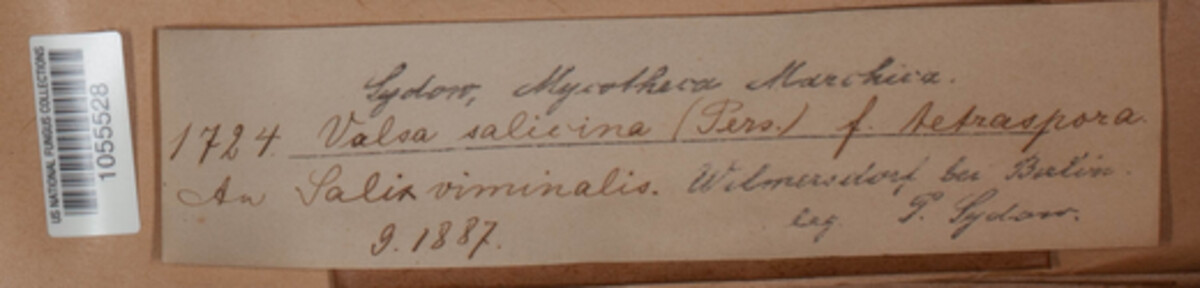 US NATIONAL FUNGUS COLLECTIONS
1055528
Sydow, Mycotheca Marchica.
1724. Valsa salicina (Pers.) f. tetraspora.
An Salix viminalis. Wilmersdorf bei Berlin.
9. 1887. leg. P. Sydow.